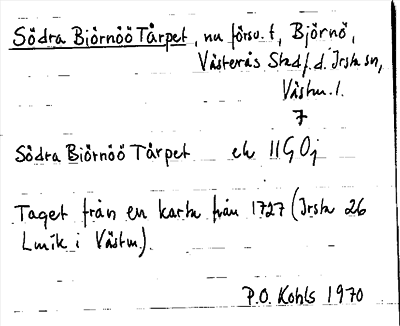 Södra Bjőrnőő Tårpet, nu försv. t, Björnö,
Västerås Stad f.d. Irsta sn,
Västm. l.
7
Södra Biőrnőő Tårpet ek 11G0j
Taget från en karta från 1727 (Irsta 26
Lmk i Västm).
P.O. Kohls 1970